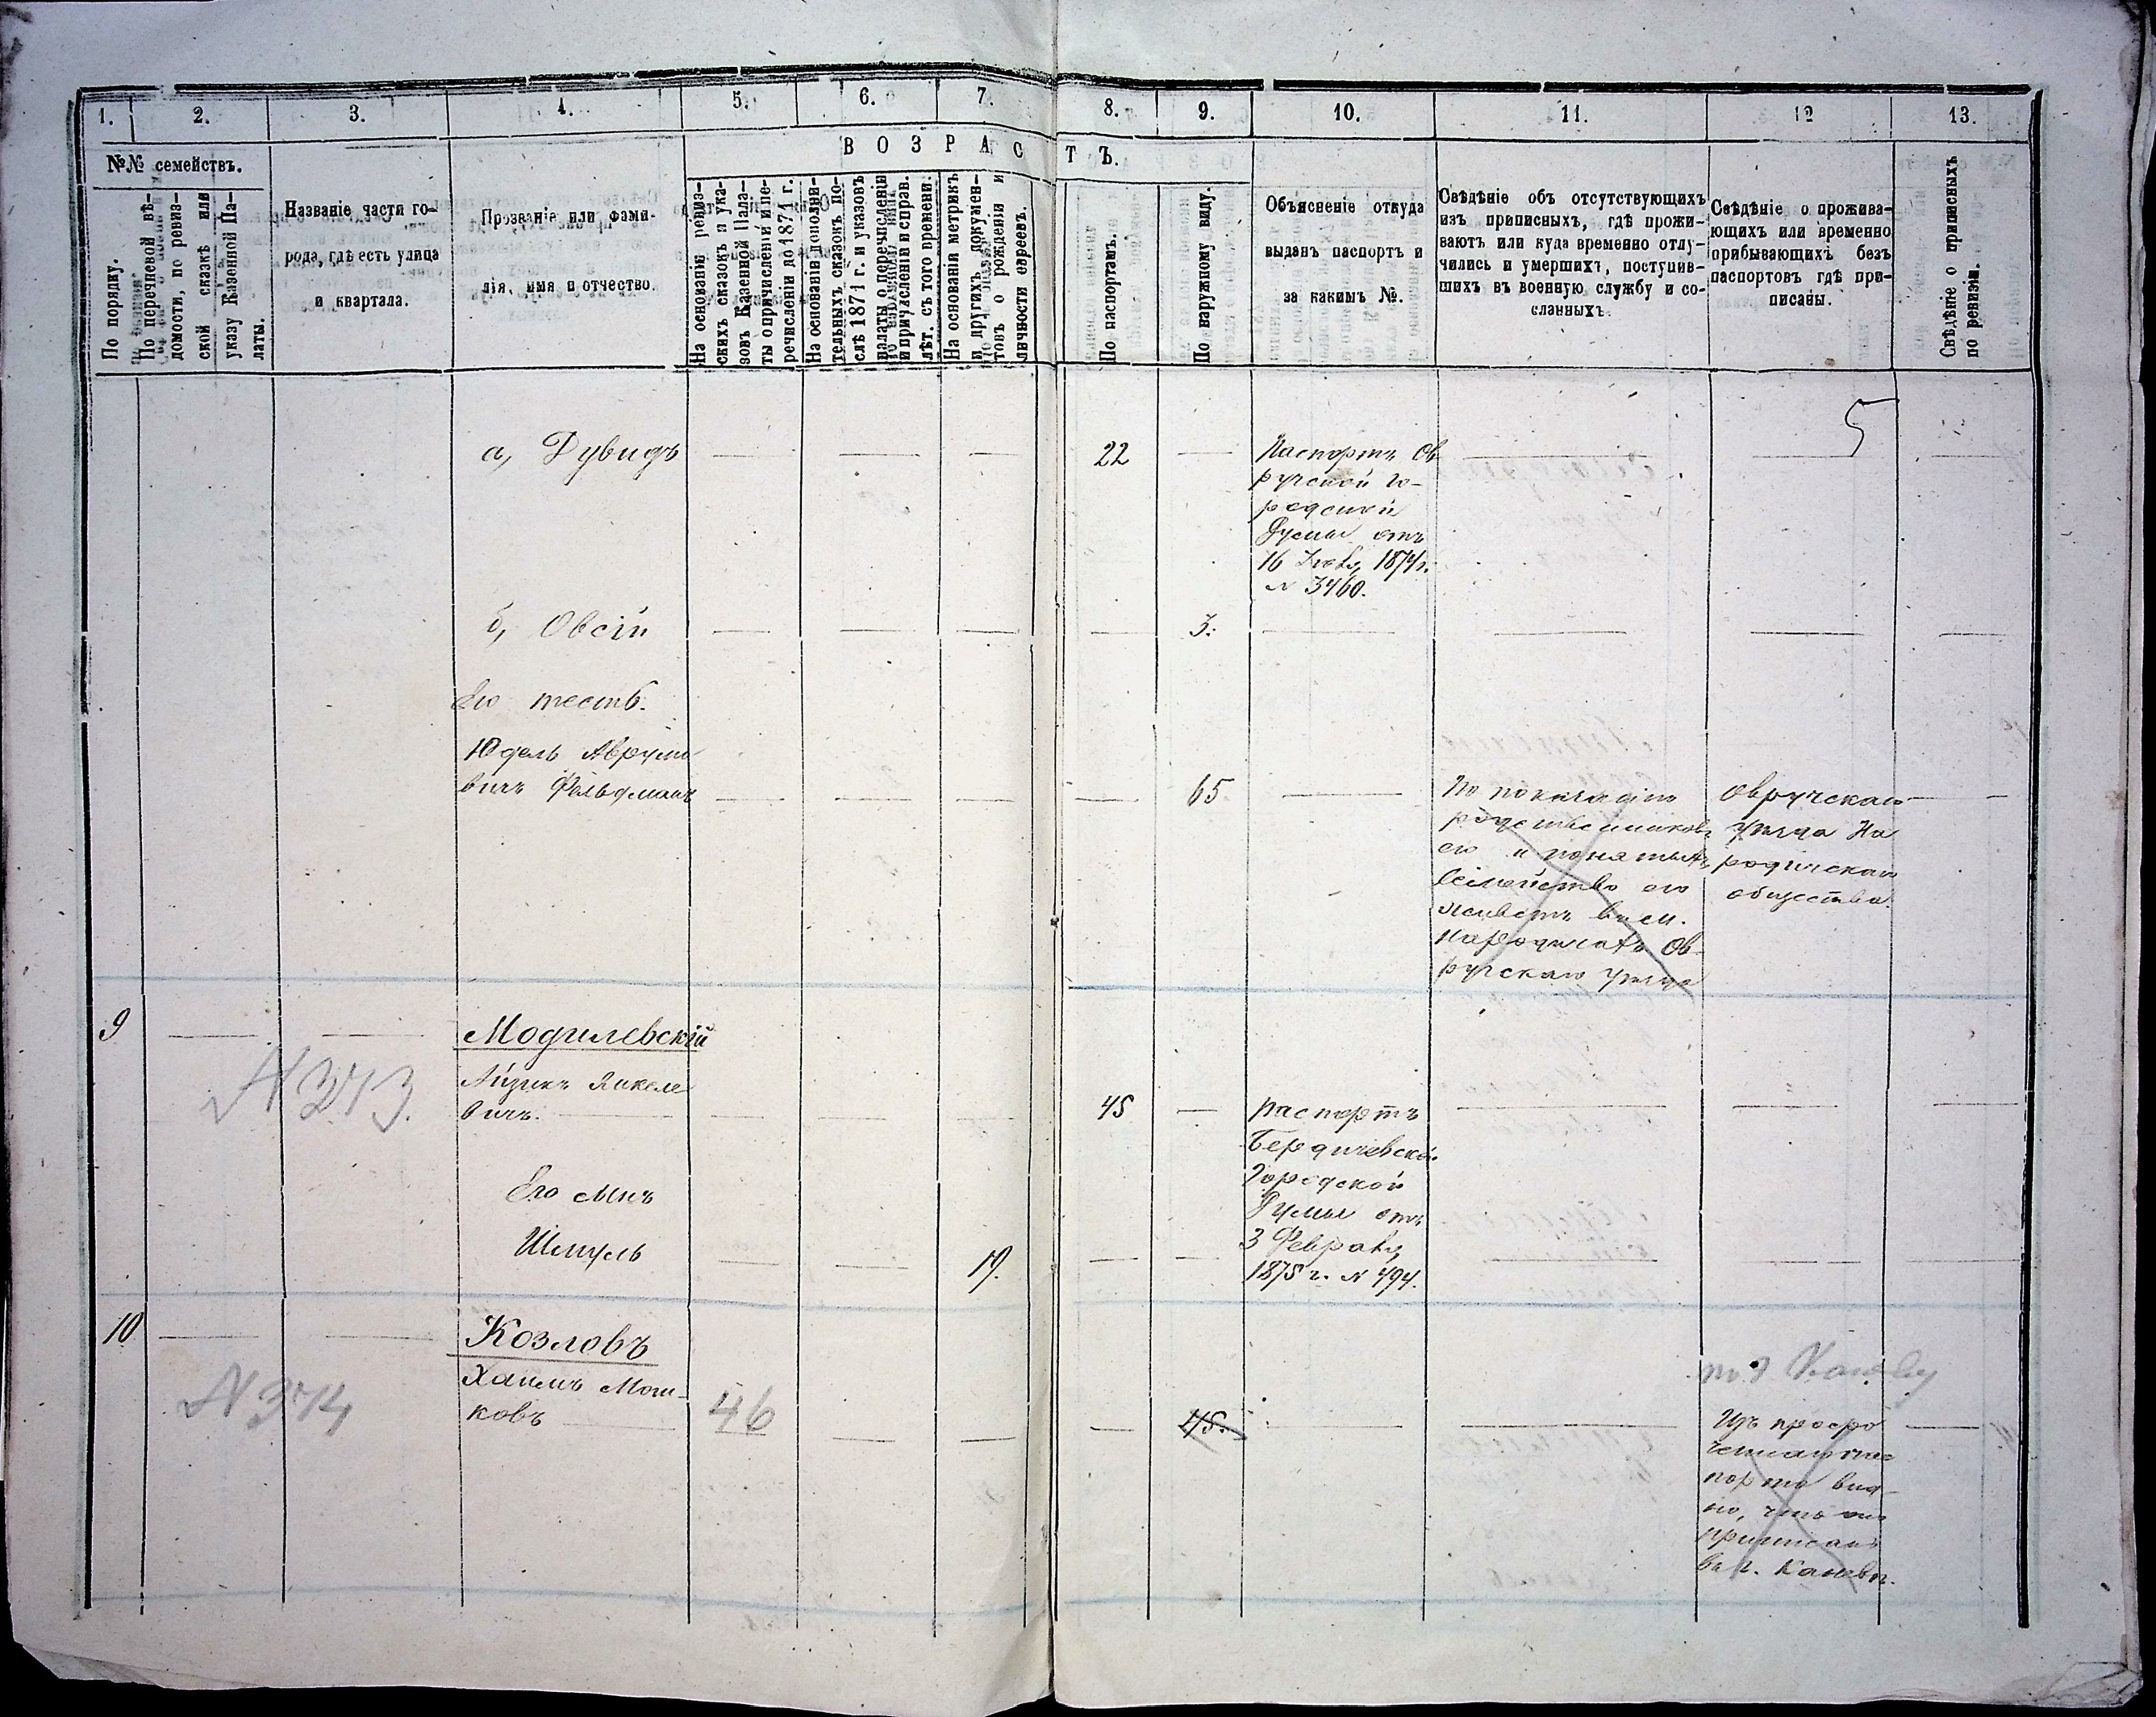 1.
2.
3.
4.
5.
6.
7.
8.
9.
10.
11.
12
13.
№№ семействъ.
По порядку.
По перечневой вѣ-
домости, по ревиз-
ской сказкѣ или
указу Казенной Па-
латы.
Названіе части го-
рода, гдѣ есть улица
и квартала.
Прозваніе или фами-
лія, имя и отчество.
ВОЗРАСТЪ.
На основаніи ревиз-
скихъ сказокъ и ука-
зовъ Казенной Пала-
ты о причисленіи и пе-
речисленіи до 1871 г.
На основаніи дополни-
тельныхъ сказокъ по-
слѣ 1871 г. и указовъ
палаты о перечисленіи
и причисленіе и справ.
лѣт. съ того времени.
На основаніи метрикъ
и другихъ докумен-
товъ о рожденіи и
личности евреевъ.
По паспортамъ.
По наружному виду.
Объясненіе откуда
выданъ паспортъ и
за какимъ №.
Свѣдѣніе объ отсутствующихъ
изъ приписныхъ, гдѣ прожи-
ваютъ или куда временно отлу-
чились и умершихъ, поступив-
шихъ въ военную службу и со-
сланныхъ.
Свѣдѣніе о прожива-
ющихъ или временно
прибывающихъ безъ
паспортовъ гдѣ при-
писаны.
Свѣдѣніе о приписныхъ
по ревизіи.
5
а, Дувидъ — — — 22 — Паспортъ Ов
ручской го-
родской
Думы отъ
16 1874 г.
N 3460.
б, Овсій — — — — 3. — — — —
Его тесть.
Юдель Аврумо
вичъ Фельдманъ — — — — 65 —
По показанію
родственниковъ
его и понятыхъ
Семейство его
живетъ въ м.
Народичахъ Ов-
ручскаго уѣзда
Овручскаго
уѣзда На
родичскаго
общества.
9 — — Модилевскій
N 373.
Айзикъ Янкеле
вичъ. — — — — 45 — Паспортъ — — —
Бердичевской
Городской
Думы отъ
3 Февраля
1875 г. N 494.
Его сынъ
Шмуль — — 19. — — — — —
10 — — Козловъ
N 374
Хаимъ Мош-
ковъ — 46 — — — 45. — —
Изъ просро
ченнаго пас
порта вид-
но, что онъ
приписанъ
въ г. Каневѣ.